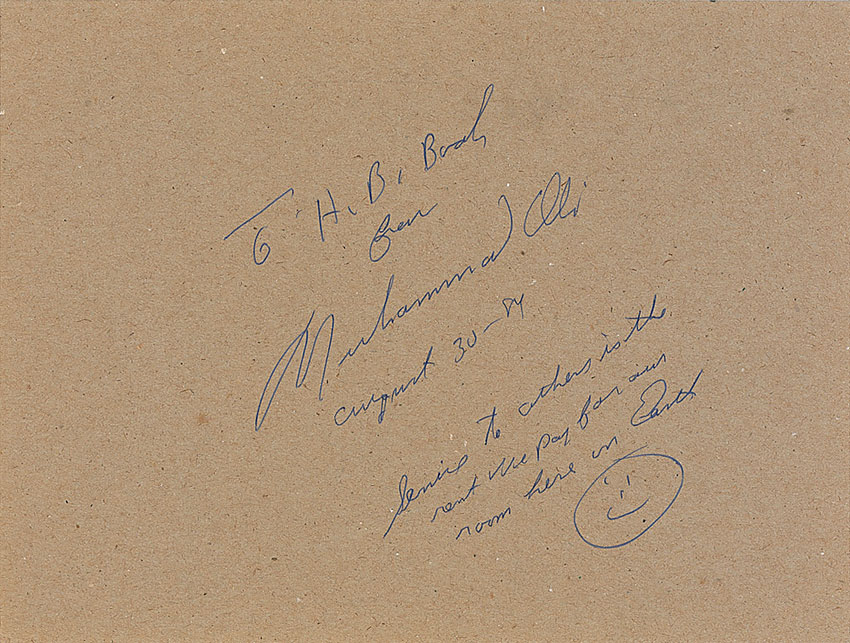 To H. B. Bach
from
Muhammad Ali
august 30-84
Service to others is the
rent we pay for our
room here on Earth